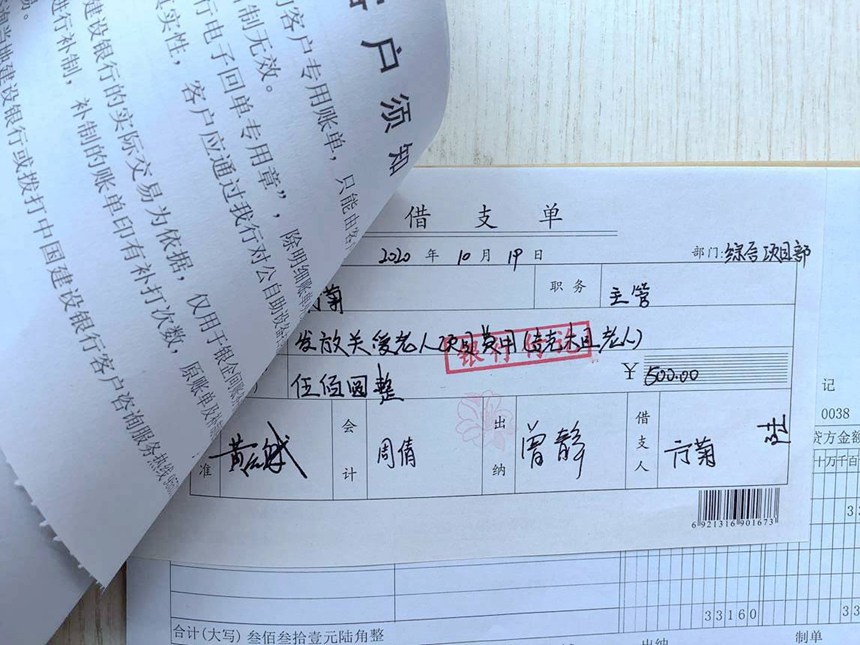 客户须知
的客户专用账单，只能由客
补制无效。
行电子回单专用章”，除明细账单
真实性，客户应通过我行对公自助设备
建设银行的实际交易为依据，仅用于银企间账
进行补制，补制的账单印有补打次数，原账单及
当地建设银行或拨打中国建设银行客户咨询服务热线
借支单
2020 年 10 月 19 日 部门:综合项目部
方菊 职务 主管
发放关爱老人项目费用
伍佰圆整 ￥500.00
准 会计 周倩 出纳 曾静 借支人 方菊
6921316901673
记
0038
贷方金额
十万千百十
33160
合计(大写) 叁佰叁拾壹元陆角整
出纳 制单